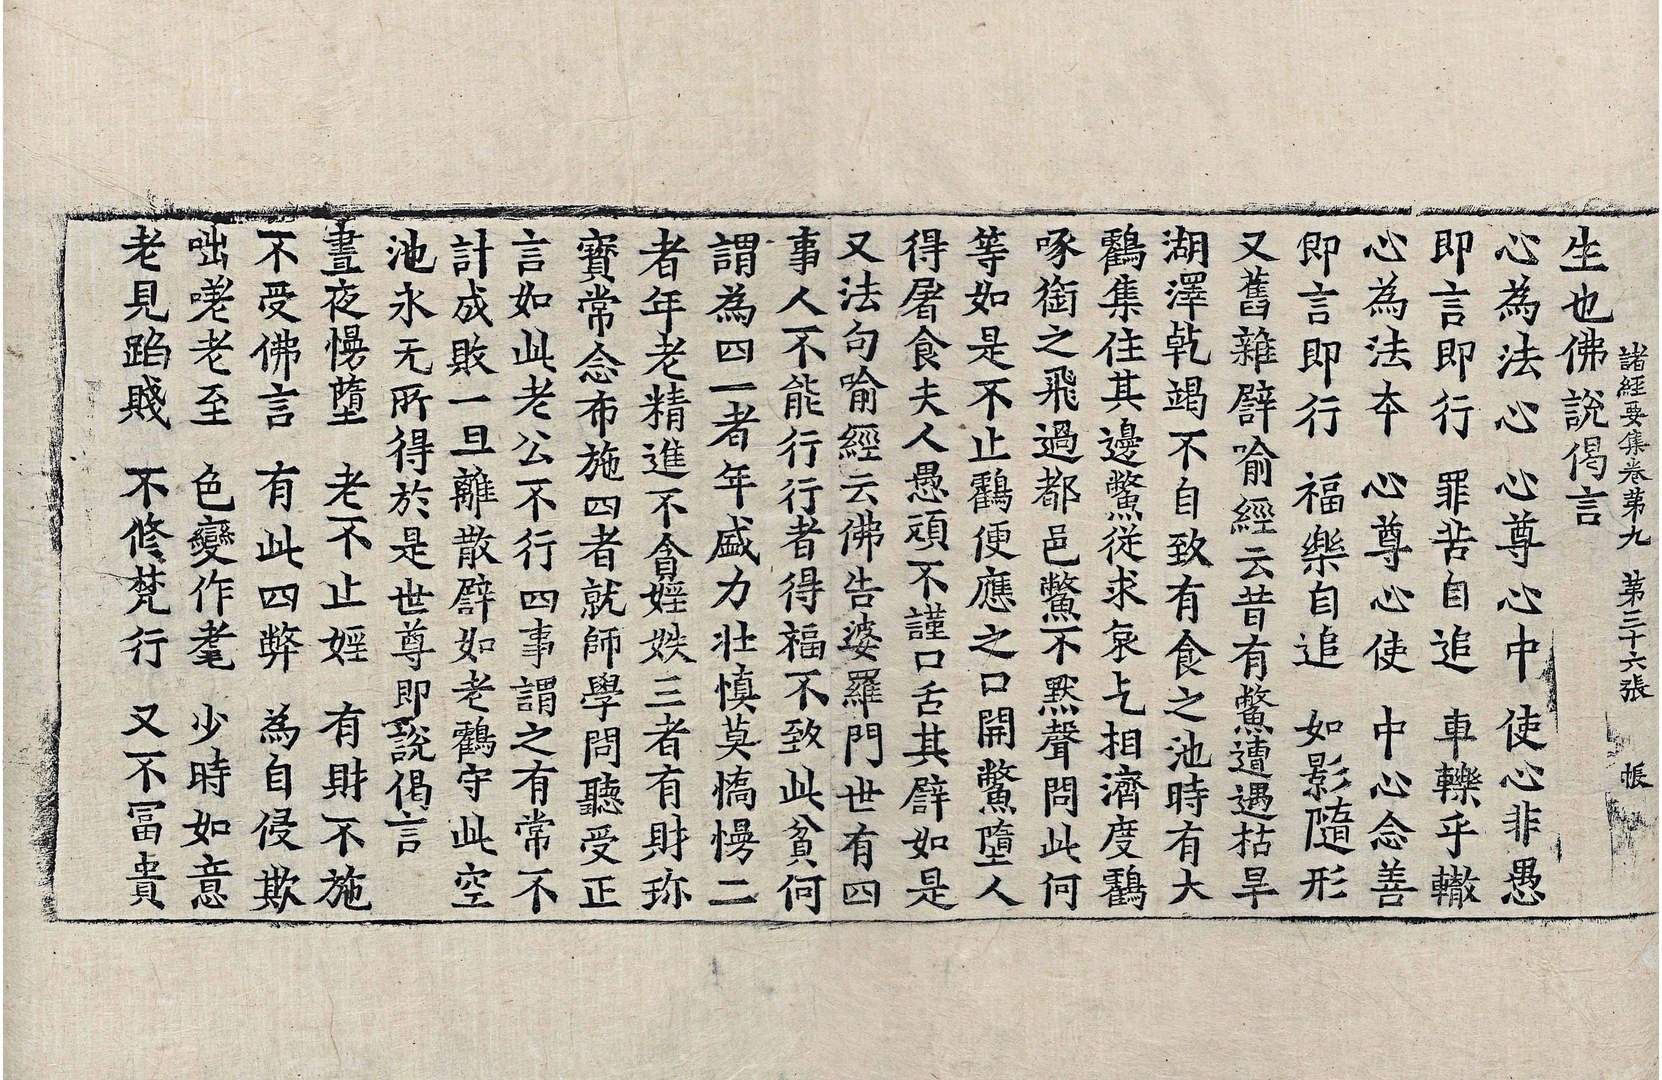 諸經要集卷苐九　苐三十六張　帳
生也佛說偈言
心為法心　心尊心中　使心非愚
即言即行　罪苦自追　車轢乎轍
心為法夲　心尊心使　中心念善
即言即行　福樂自追　如影隨形
又舊雜譬喻經云昔有鱉遭遇枯旱
湖澤乾竭不自致有食之池時有大
鸛集住其邊鱉從求哀乞相濟度鸛
啄銜之飛過都邑鱉不默聲問此何
等如是不止鸛便應之口開鱉墮人
得屠食夫人愚頑不謹口舌其譬如是
又法句喻經云佛告婆羅門世有四
事人不能行行者得福不致此貧何
謂為四一者年盛力壯慎莫憍慢二
者年老精進不貪婬妷三者有財珎
寶常念布施四者就師學問聽受正
言如此老公不行四事謂之有常不
計成敗一旦離散譬如老鸛守此空
池永无所得於是世尊即說偈言
晝夜慢墮　老不止婬　有財不施
不受佛言　有此四弊　為自侵欺
咄嗟老至　色變作耄　少時如意
老見蹈賤　不修梵行　又不冨貴